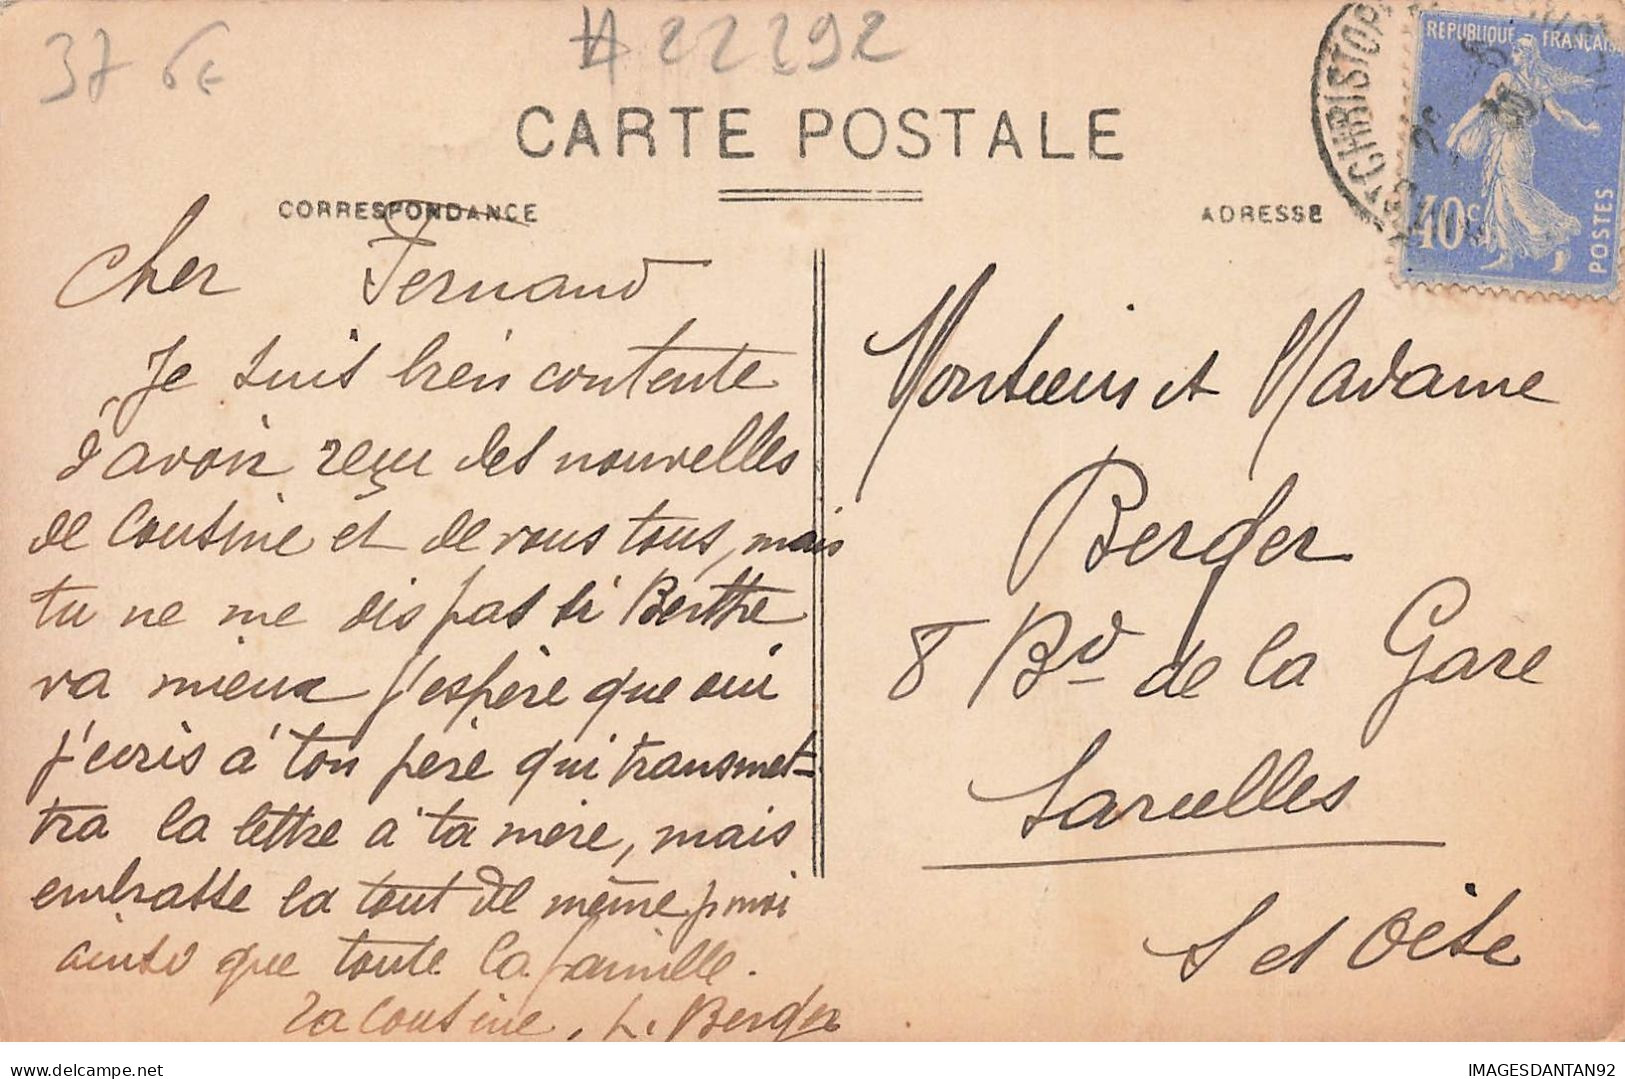 37 6€
#22292
CARTE POSTALE
CORRESPONDANCE
ADRESSE
REPUBLIQUE FRANÇAISE
40c
POSTES
CHRISTOP
Cher Fernand
Je suis bien contente
d'avoir reçu des nouvelles
de Cousine et de vous tous, mais
tu ne me dis pas si Berthe
va mieux j'espère que oui
j'écris à ton père qui transmet-
tra la lettre à ta mère, mais
embrasse la tout de même p moi
ainsi que toute la famille.
Ta Cousine, L. Berger
Monsieur et Madame
Berger
8 Bd de la Gare
Sarcelles
S et Oise
IMAGESDANTAN92